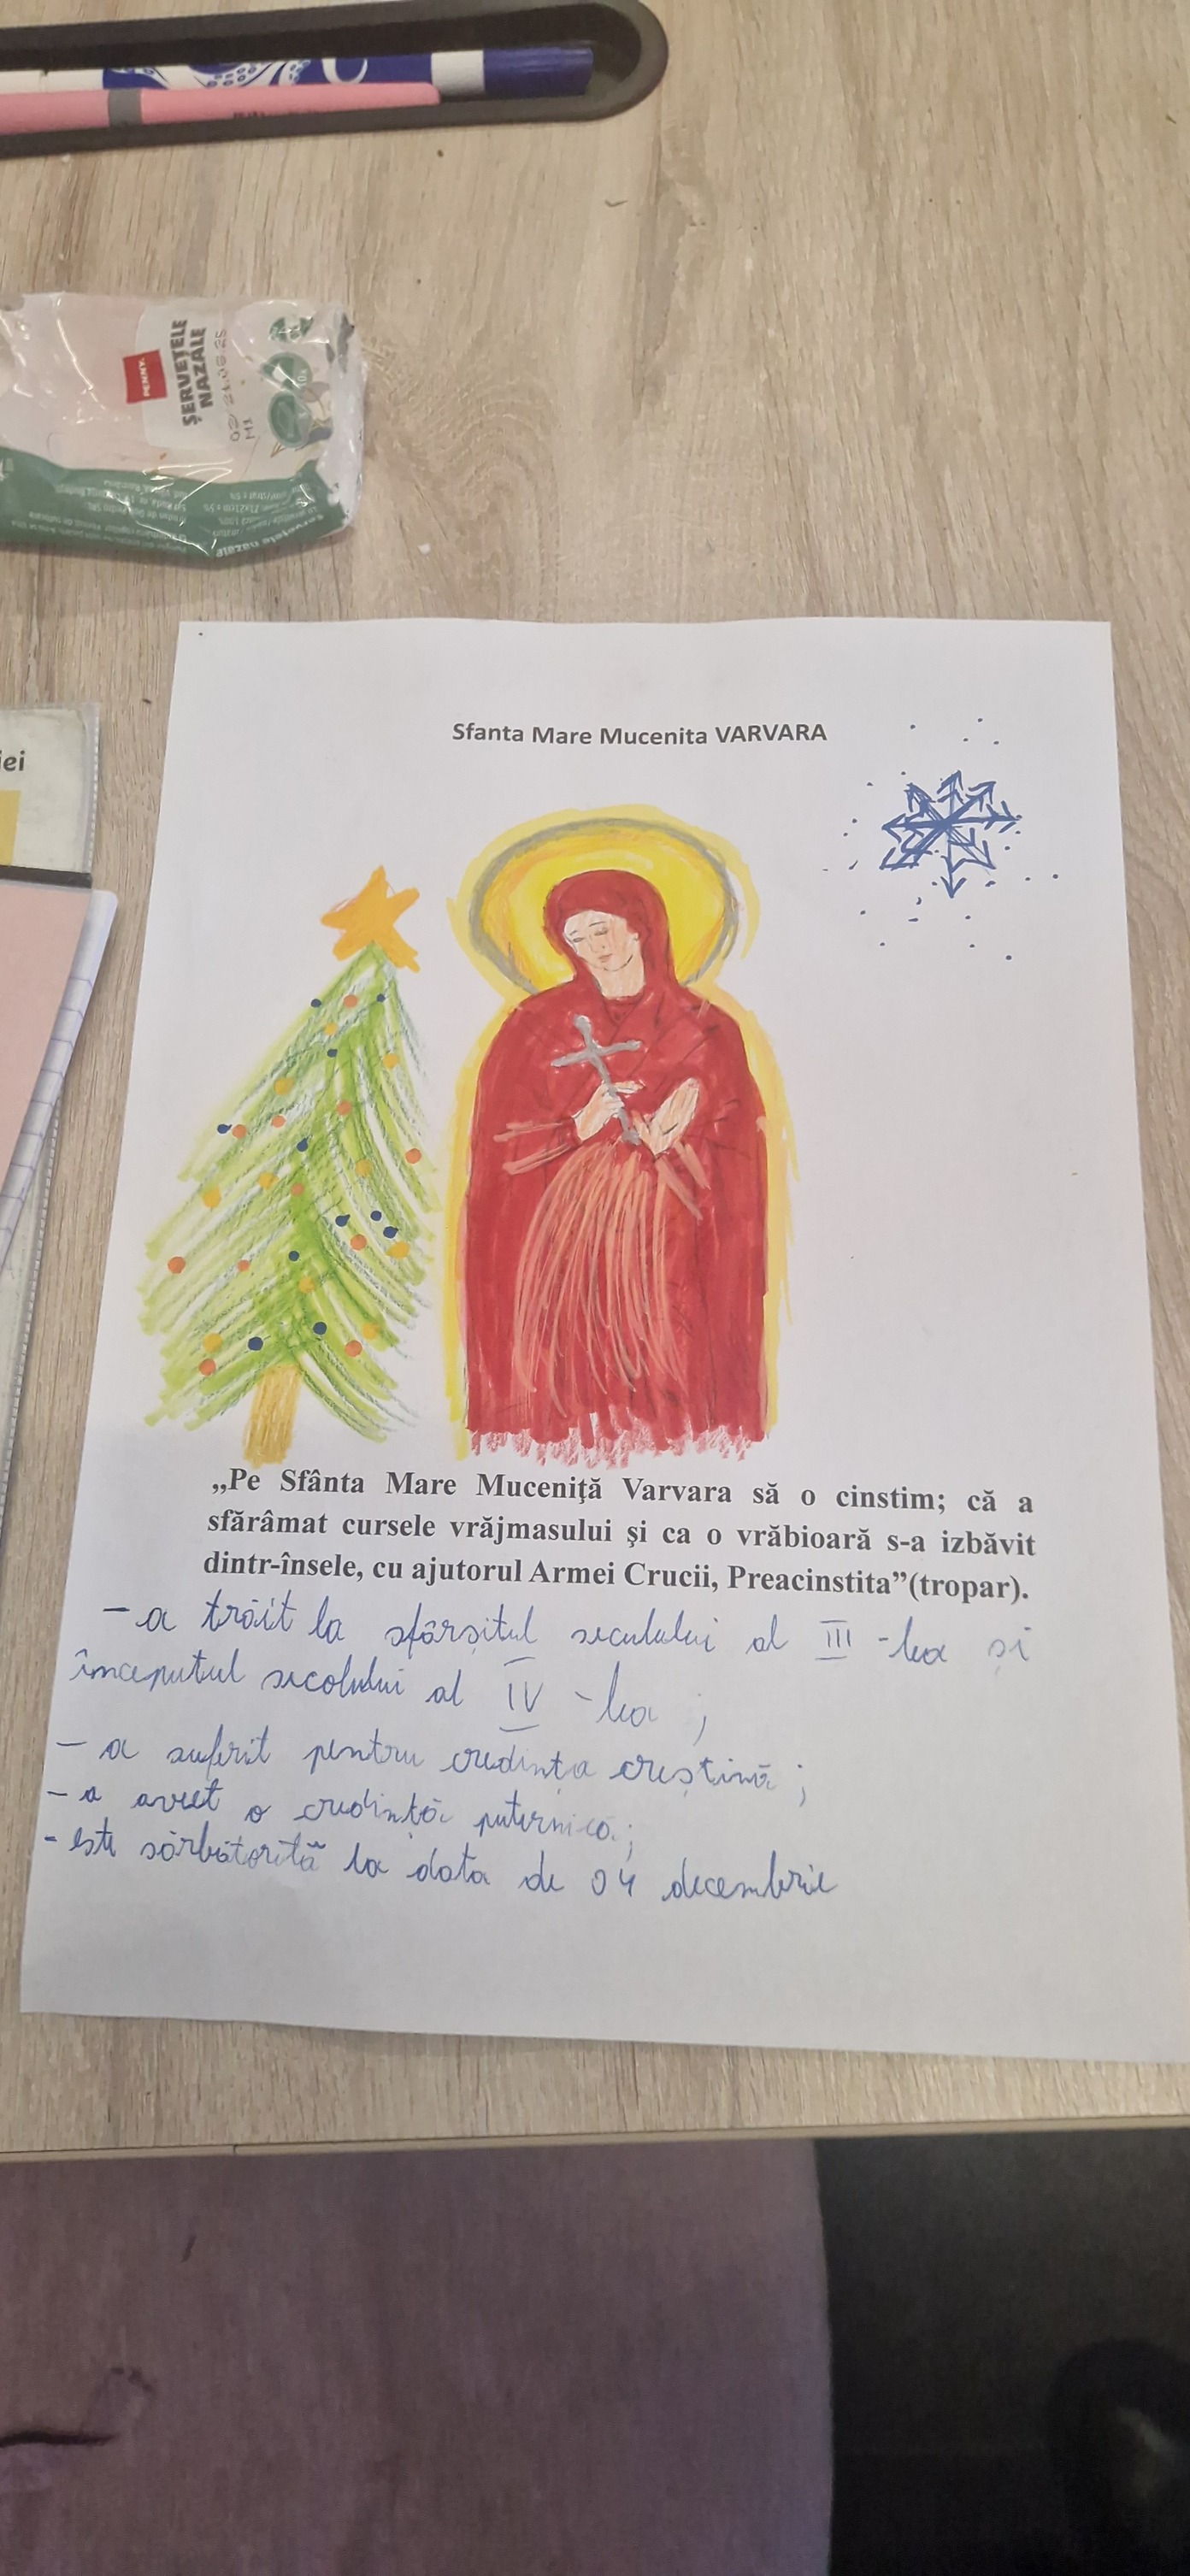 PENNY.
ȘERVEȚELE
NAZALE
02/ 21.08.25
M1
10x
Șervețele nazale
iei
Sfanta Mare Mucenita VARVARA
„Pe Sfânta Mare Muceniţă Varvara să o cinstim; că a
sfărâmat cursele vrăjmasului şi ca o vrăbioară s-a izbăvit
dintr-însele, cu ajutorul Armei Crucii, Preacinstita”(tropar).
- a trăit la sfârșitul seculului al III -lea și
începutul secolului al IV -lea ;
- a suferit pentru credința creștină ;
- a avut o credință puternică ;
- este sărbătorită la data de 04 decembrie